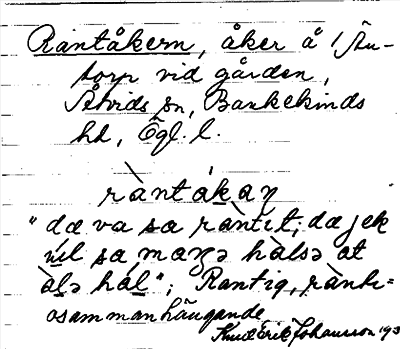 Rantåkern, åker å Åu-
torp vid gården,
Åtvids sn, Bankekinds
hd, Ögl. l.
ràntákaṇ
"dæ va sa ràntıt; dæ jek
sa maŋə hàlsə at
àlə hál"; Rantig, ränk-
osammanhängande
Knut Erik Johansson 193